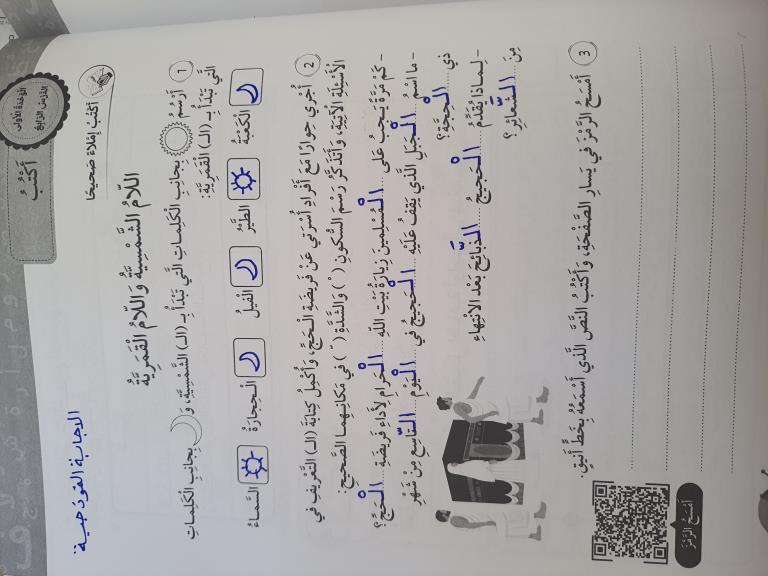 الاجابة النموذجية
الوَحْدَةُ الْأولى
الدَّرْسُ الرّابِعُ
أَكْتُبُ
أَكْتُبُ إِمْلاءً صَحيحًا
اللّامُ الشَّمْسِيَّةُ وَاللّامُ الْقَمَرِيَّةُ
1 أَرْسُمُ بِجانِبِ الْكَلِماتِ الَّتي تَبْدَأُ بِـ (الـ) الشَّمْسِيَّةِ، وَ بِجانِبِ الْكَلِماتِ
الَّتي تَبْدَأُ بِـ (الـ) الْقَمَرِيَّةِ:
الْكَعْبَةُ الطَّيْرُ الْفيلُ الْـحِجارَةُ السَّماءُ
2 أُجْري حِوارًا مَعَ أَفْرادِ أُسْرَتي عَنْ فَريضَةِ الْـحَجِّ، وَأُكْمِلُ كِتابَةَ (الـ) التَّعْريفِ في
الْأَسْئِلَةِ الْآتِيَةِ، وَأَتَذَكَّرُ رَسْمَ السُّكونِ ( ْ ) وَالشَّدَّةِ ( ّ ) في مَكانِـهِما الصَّحيحِ:
- كَمْ مَرَّةً يَجِبُ عَلى الْـمُسْلِمينَ زِيارَةُ بَيْتِ اللهِ الْـحَرامِ لِأَداءِ فَريضَةِ الْـحَجِّ؟
- ما اسْمُ الْـجَبَلِ الَّذي يَقِفُ عَلَيْهِ الْـحَجيجُ في الْـيَوْمِ التّاسِعِ مِنْ شَهْرِ
ذي الْـحِجَّةِ؟
- لِـماذا يُقَدِّمُ الْـحَجيجُ الذَّبائِحَ بَعْدَ الِانْتِهاءِ
مِنَ الشَّعائِرِ؟
3 أَمْسَحُ الرَّمْزَ في يَسارِ الصَّفْحَةِ، وَأَكْتُبُ النَّصَّ الَّذي أَسْمَعُهُ بِخَطٍّ أَنيقٍ.
أَمْسَحُ الرَّمْزَ